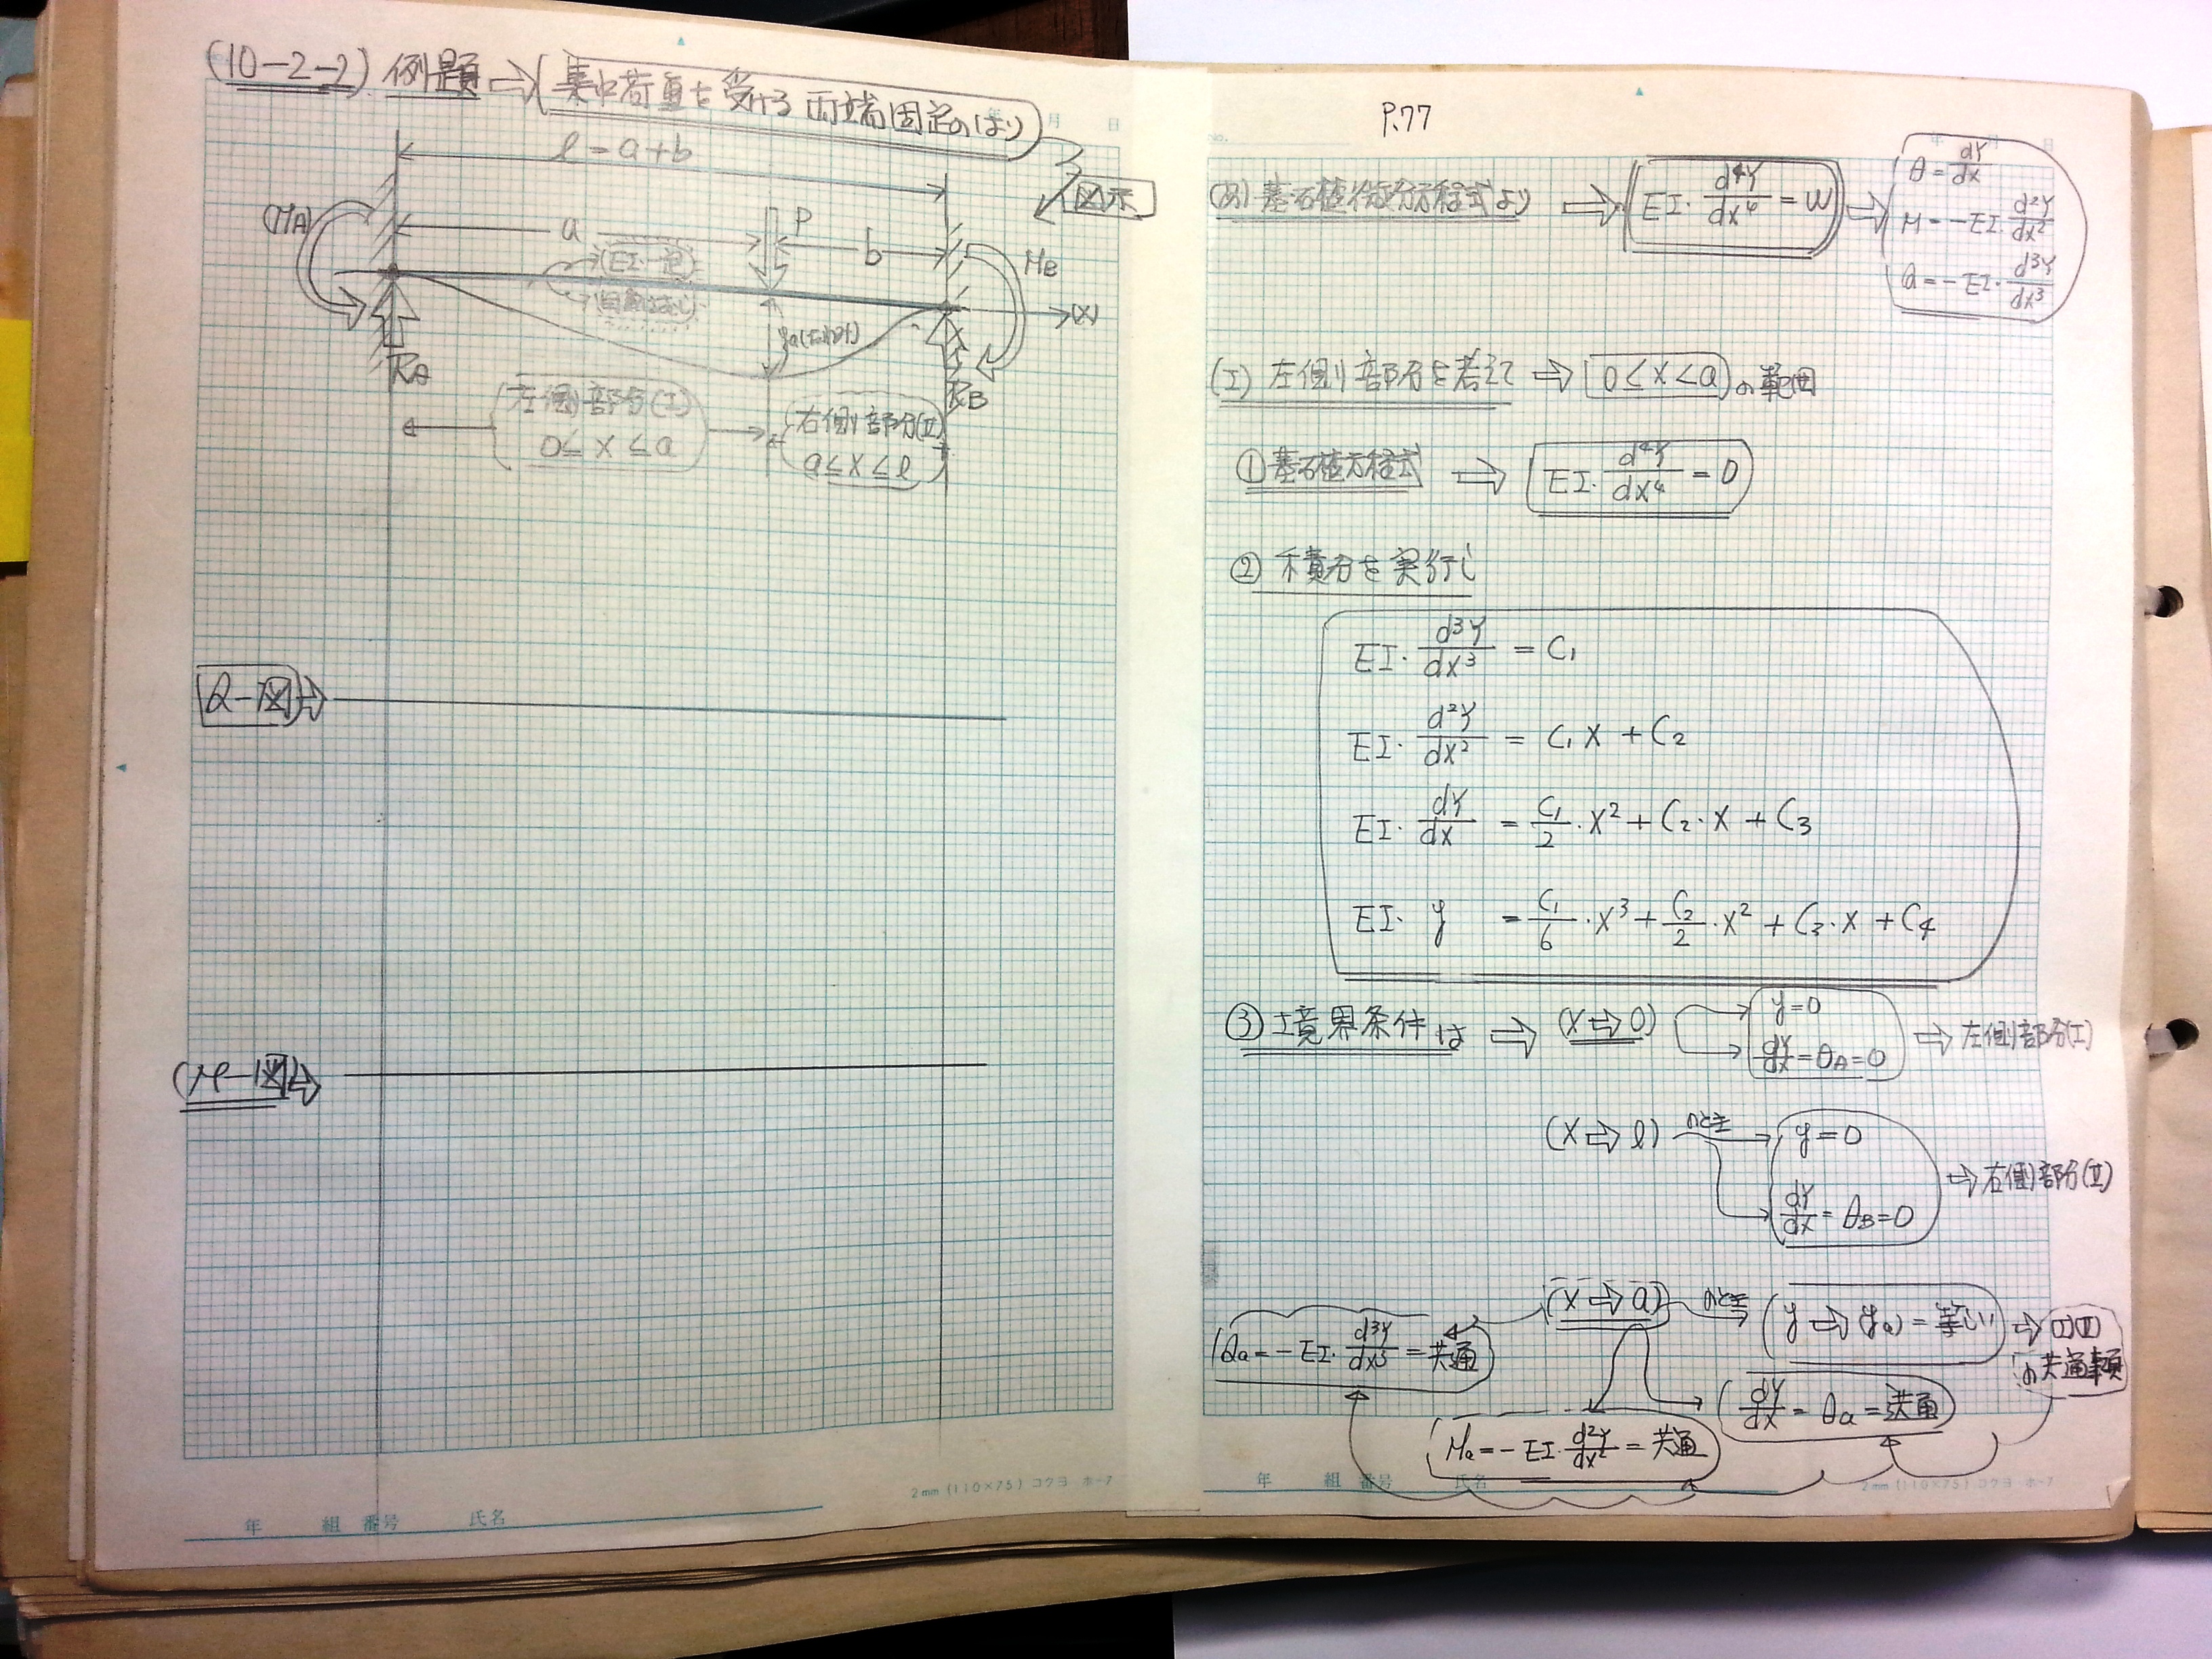 (10-2-2) 例題 ⇒ 集中荷重を受ける両端固定のはり
l = a + b
図示
(MA)
a
P
b
MB
(EI一定)
(X)
RA
RB
左側部分(I)
0 ≤ X ≤ a
右側部分(II)
a ≤ X ≤ l
Q-図 ⇒
(M-図) ⇒
年 組 番号 氏名
2mm (110×75) コクヨ ホ-7
P.77
No.
年 月 日
基礎微分方程式より ⇒ EI・d⁴y/dx⁴ = w →
θ = dy/dx
M = -EI・d²y/dx²
Q = -EI・d³y/dx³
(I) 左側部分を考えて ⇒ 0 ≤ X < a の範囲
① 基礎方程式 ⇒ EI・d⁴y/dx⁴ = 0
② 積分を実行し
EI・d³y/dx³ = C₁
EI・d²y/dx² = C₁X + C₂
EI・dy/dx = C₁/2・X² + C₂・X + C₃
EI・y = C₁/6・X³ + C₂/2・X² + C₃・X + C₄
③ 境界条件は ⇒ (X⇒0) y=0
dy/dx = θA = 0 ⇒ 左側部分(I)
(X⇒l) のとき y=0
dy/dx = θB = 0 ⇒ 右側部分(II)
(X⇒a) のとき y ⇒ (ya) = 等しい ⇒ (I)(II)
の共通事項
Qa = -EI・d³y/dx³ = 共通
dy/dx = θa = 共通
Ma = -EI・d²y/dx² = 共通
年 組 番号 氏名
2mm (110×75) コクヨ ホ-7